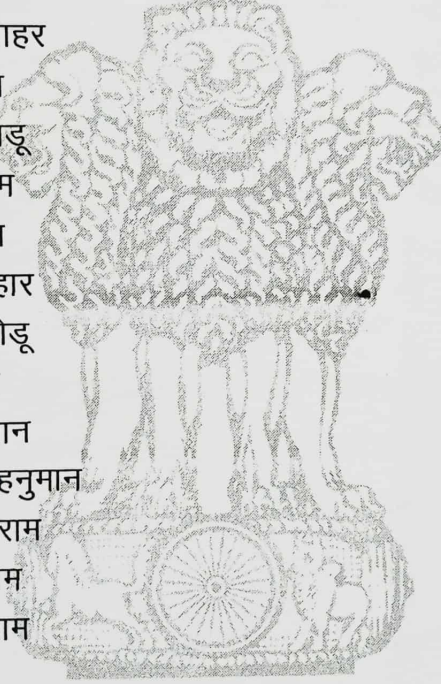 ाहर
ा
ाडू
म
ा
हार
ोडू
ान
हनुमान
राम
ाम
ाम